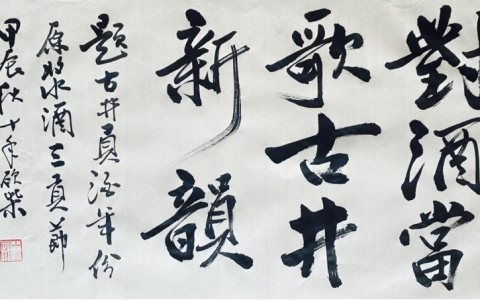 對酒當
歌古井
新韻
題古井貢酒年份
原漿酒三貢節
甲辰秋